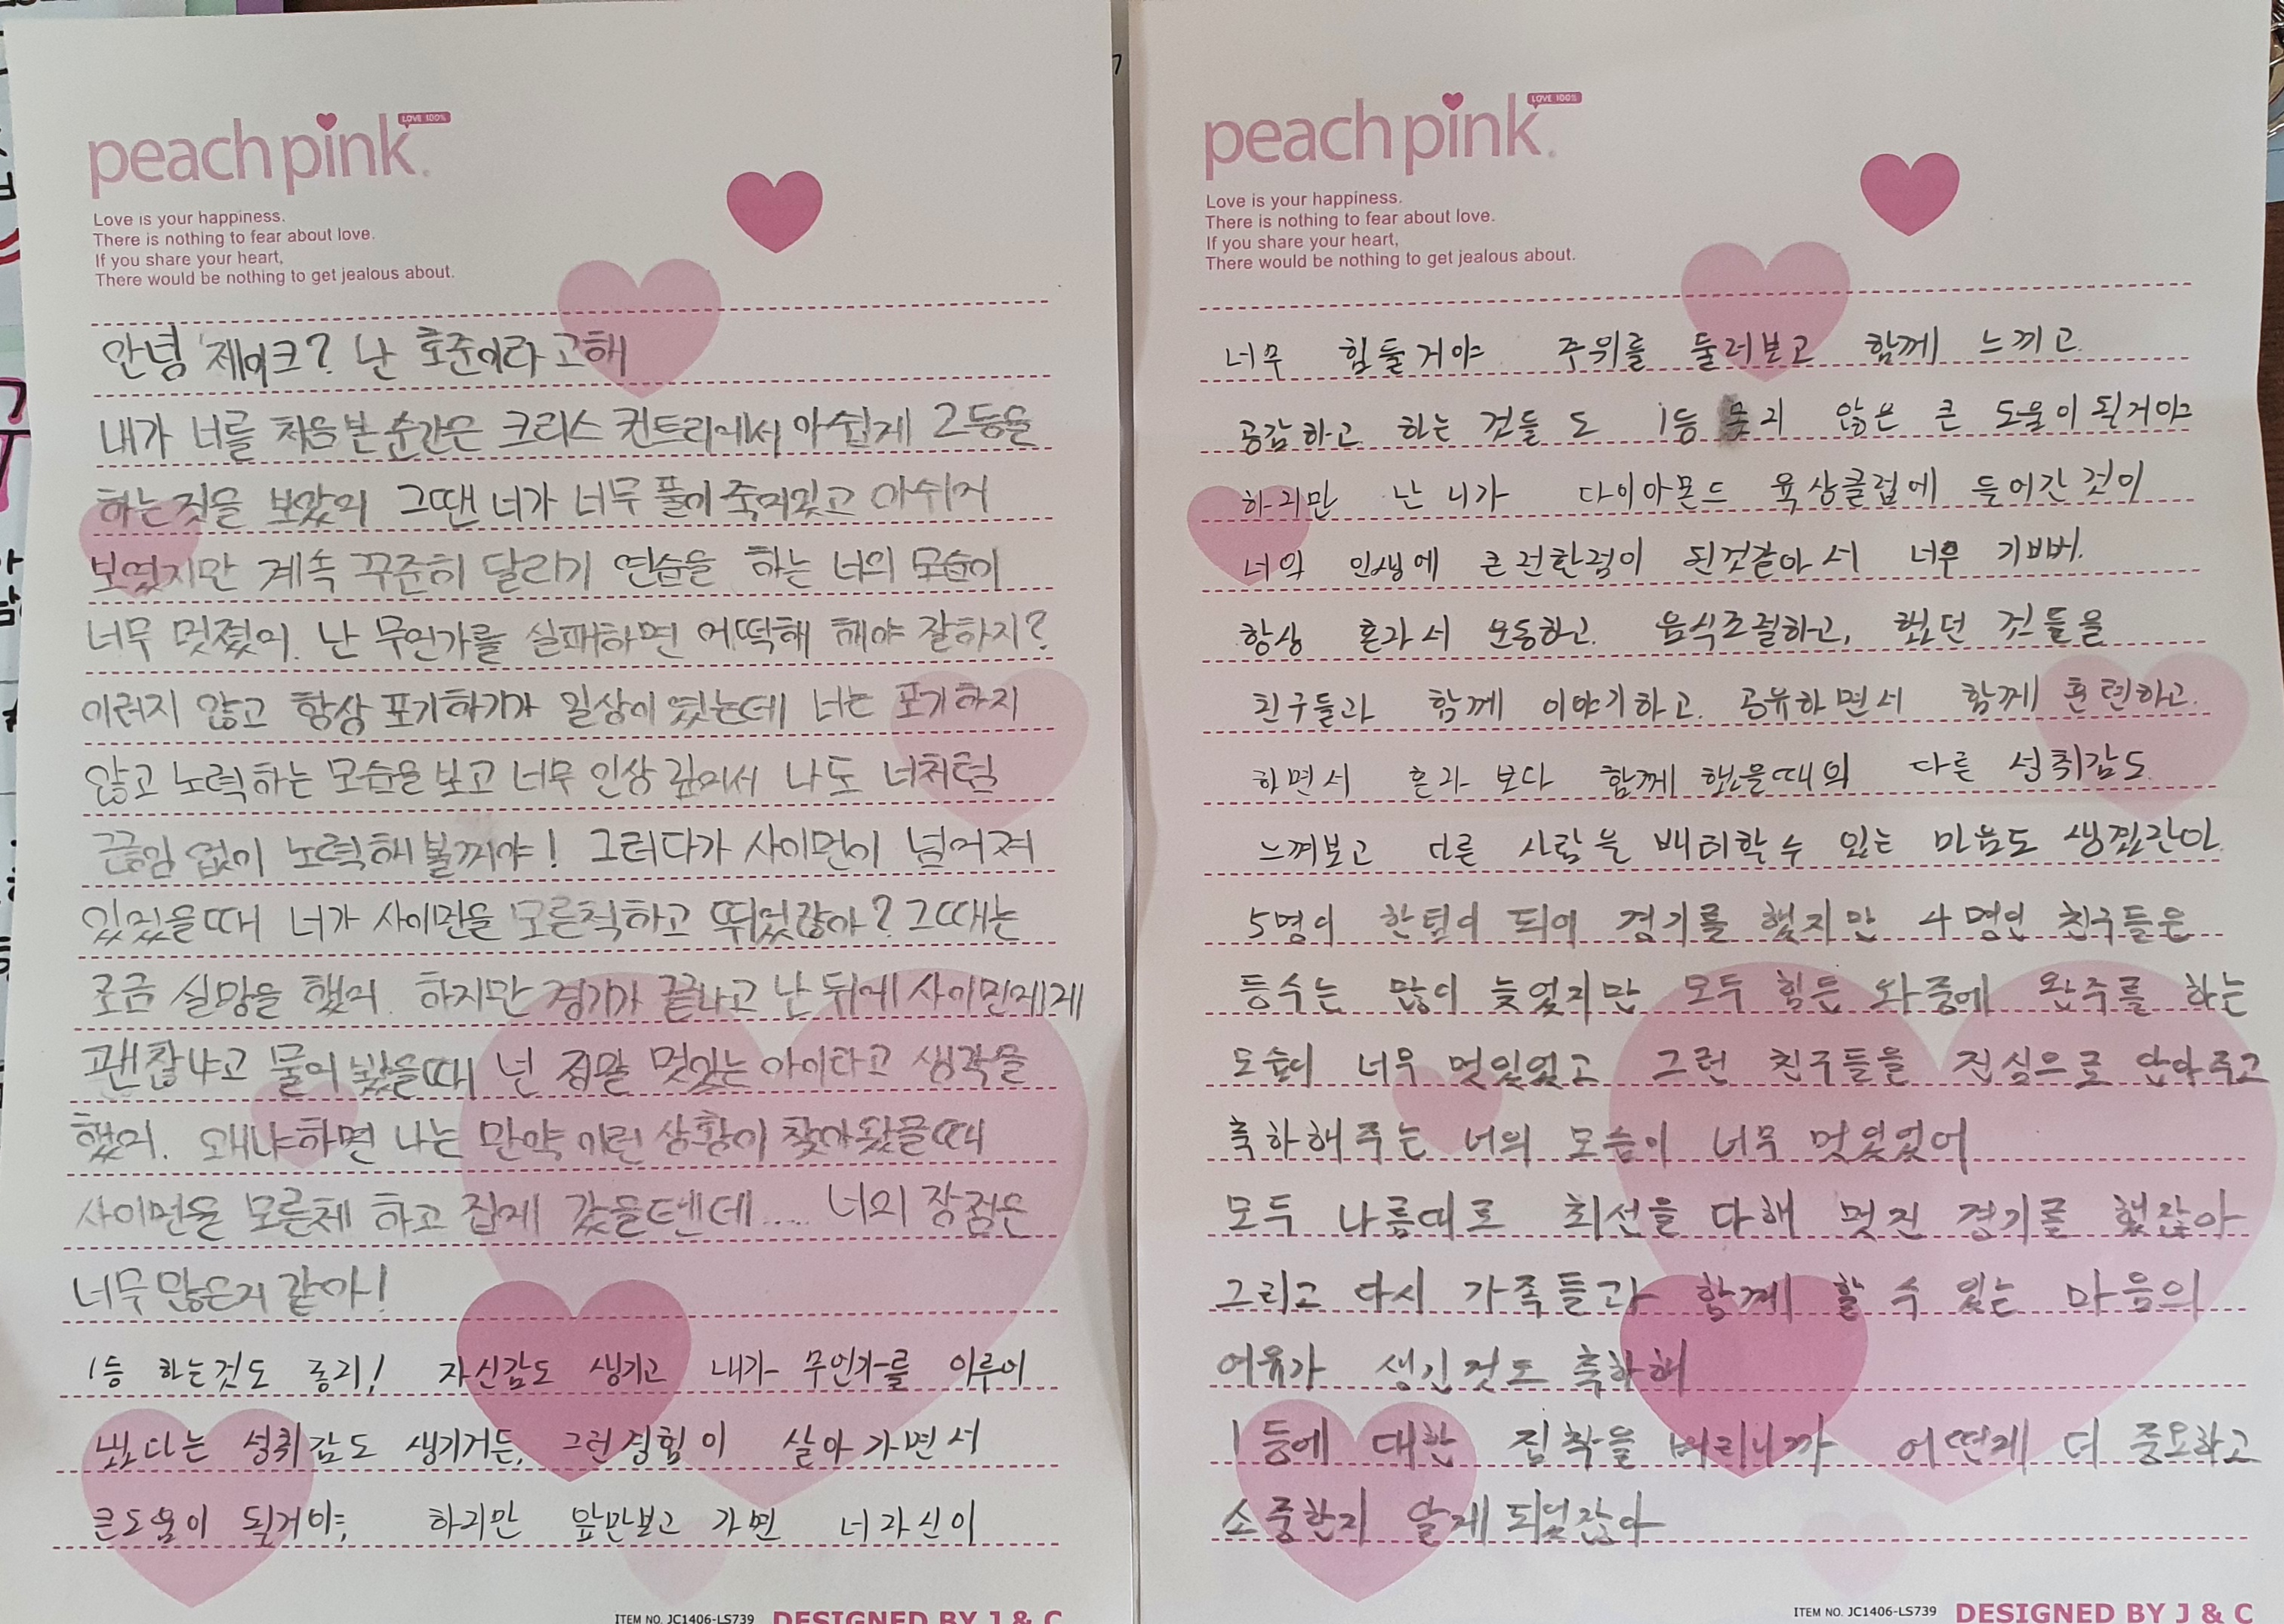 peach pink
LOVE 100%
Love is your happiness.
There is nothing to fear about love.
If you share your heart,
There would be nothing to get jealous about.
안녕 제이크? 난 호준이라고해
내가 너를 처음본 순간은 크리스 컨트리에서 아쉽게 2등을
하는것을 보았어 그땐 너가 너무 풀이 죽어있고 아쉬어
보였지만 계속 꾸준히 달리기 연습을 하는 너의 모습이
너무 멋졌어. 난 무언가를 실패하면 어떡해 해야 잘하지?
이러지 않고 항상 포기하기가 일상이 였는데 너는 포기하지
않고 노력하는 모습을 보고 너무 인상 깊어서 나도 너처럼
끊임 없이 노력해 볼꺼야! 그러다가 사이먼이 넘어져
있었을때 너가 사이먼을 모른척하고 뛰었잖아? 그때는
조금 실망을 했어. 하지만 경기가 끝나고 난 뒤에 사이먼에게
괜찮냐고 물어 봤을때 넌 정말 멋있는 아이라고 생각을
했어. 왜냐하면 나는 만약 이런 상황이 찾아왔을때
사이먼을 모른체 하고 집에 갔을텐데..... 너의 장점은
너무 많은거 같아!
1등 하는것도 좋지! 자신감도 생기고 내가 무언가를 이루어
냈다는 성취감도 생기거든, 그런경험이 살아가면서
큰도움이 될거야, 하지만 앞만보고 가면 너자신이
ITEM NO. JC1406-LS739 DESIGNED BY J & C
peach pink
LOVE 100%
Love is your happiness.
There is nothing to fear about love.
If you share your heart,
There would be nothing to get jealous about.
너무 힘들거야 주위를 둘러보고 함께 느끼고
공감하고 하는 것들 도 1등 못지 않은 큰 도움이될거야
하지만 난 니가 다이아몬드 육상클럽에 들어간것이
너의 인생에 큰전환점이 된것같아서 너무 기뻐.
항상 혼자서 운동하고. 음식조절하고, 했던 것들을
친구들과 함께 이야기하고. 공유하면서 함께 훈련하고.
하면서 혼자 보다 함께 했을때의 다른 성취감도
느껴보고 다른 사람을 배려할수 있는 마음도 생겼잖아.
5명이 한팀이 되어 경기를 했지만 4명인 친구들은
등수는 많이 늦었지만 모두 힘든 와중에 완주를 하는
모습이 너무 멋있었고 그런 친구들을 진심으로 안아주고
축하해주는 너의 모습이 너무 멋있었어
모두 나름대로 최선을 다해 멋진 경기를 했잖아
그리고 다시 가족들과 함께 할 수 있는 마음의
여유가 생긴것도 축하해
1등에 대한 집착을 버리니까 어떤게 더 중요하고
소중한지 알게 되었잖아
ITEM NO. JC1406-LS739 DESIGNED BY J & C